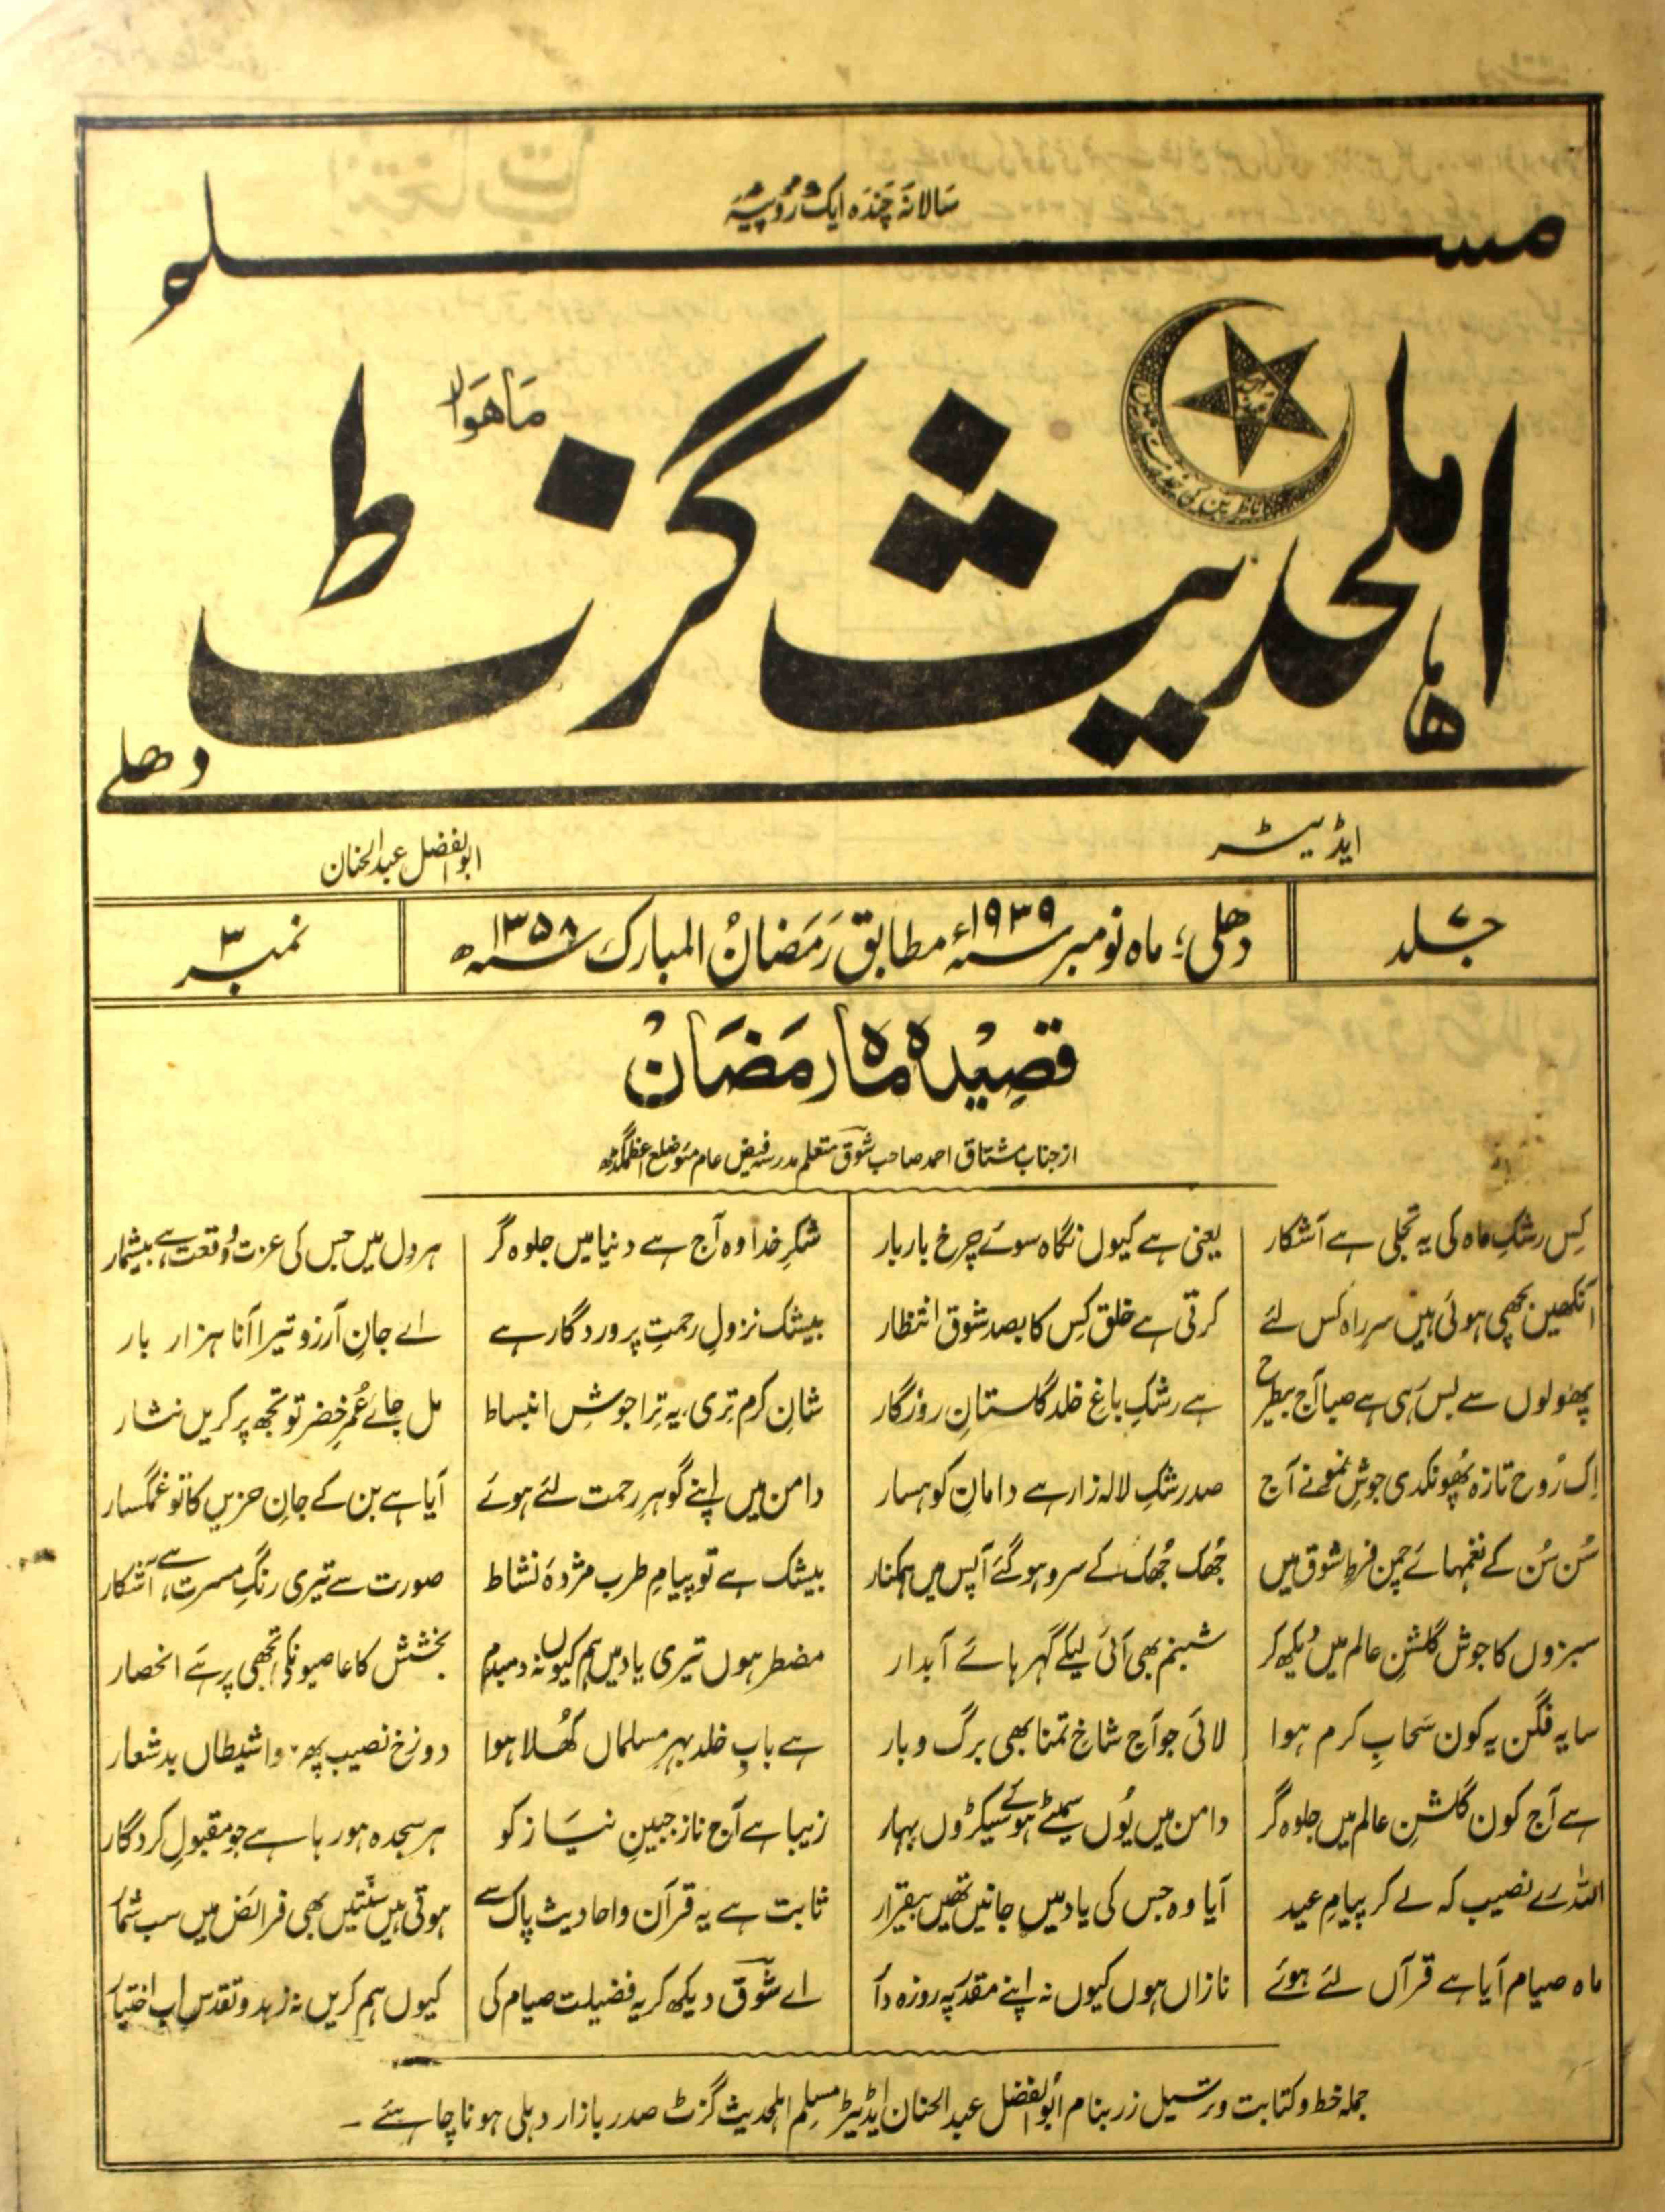 سالانہ چندہ ایک روپیہ
مسلم
اہلحدیث گزٹ
ماہوار
دھلی
ایڈیٹر
ابوالفضل عبدالحنان
جلد ۷
دھلی؛ ماہ نومبر سنہ ۱۹۳۹ء مطابق رمضان المبارک سنہ ۱۳۵۸ھ
نمبر ۳
قصیدہ ماہ رمضان
از جناب مشتاق احمد صاحب شوق متعلم مدرسہ فیض عام مئو ضلع اعظم گڈھ
کس رشک ماہ کی یہ تجلی ہے آشکار
یعنی ہے کیوں نگاہ سوئے چرخ بار بار
آنکھیں بچھی ہوئی ہیں سر راہ کس لئے
کرتی ہے خلق کس کا بصد شوق انتظار
پھولوں سے بس رہی ہے صبا آج بطرح
ہے رشک باغ خلد گلستان روزگار
اِک رُوح تازہ پھونکدی جوش نمو نے آج
صد رشک لالہ زار ہے دامان کوہسار
سُن سُن کے نغمہائے چمن فرط شوق میں
جُھک جُھک کے سرو ہو گئے آپس میں ہمکنار
سبزوں کا جوش گلشن عالم میں دیکھ کر
شبنم بھی آئی لیکے گہر ہائے آبدار
سایہ فگن یہ کون سحاب کرم ہوا
لائی جو آج شاخ تمنا بھی برگ و بار
ہے آج کون گلشن عالم میں جلوہ گر
دامن میں یُوں سمیٹے ہوئے سیکڑوں بہار
اللہ رے نصیب کہ لے کر پیام عید
آیا وہ جس کی یاد میں جانیں تھیں بیقرار
ماہ صیام آیا ہے قرآں لئے ہوئے
نازاں ہوں کیوں نہ اپنے مقدر پہ روزہ دار
شکر خدا وہ آج ہے دنیا میں جلوہ گر
ہر دل میں جس کی عزت و وقعت ہے بیشمار
بیشک نزول رحمت پروردگار ہے
اے جان آرزو تیرا آنا ہزار بار
شان کرم تری، یہ ترا جوش انبساط
مل جائے عمر خضر تو تجھ پر کریں نثار
دامن میں اپنے گوہر رحمت لئے ہوئے
آیا ہے بن کے جان حزیں کا تو غمگسار
بیشک ہے تو پیام طرب مژدۂ نشاط
صورت سے تیری رنگ مسرت ہے آشکار
مضطر ہوں تیری یاد میں ہم کیوں نہ دمبدم
بخشش کا عاصیونکی تجھی پر ہے انحصار
ہے باب خلد بہر مسلماں کُھلا ہوا
دوزخ نصیب پھر ہوا شیطاں بد شعار
زیبا ہے آج ناز جبین نیاز کو
ہر سجدہ ہو رہا ہے جو مقبول کردگار
ثابت ہے یہ قرآن و احادیث پاک سے
ہوتی ہیں سنتیں بھی فرائض میں سب شمار
اے شوق دیکھ کر یہ فضیلت صیام کی
کیوں ہم کریں نہ زہد و تقدس اب اختیار
جملہ خط و کتابت و ترسیل زر بنام ابوالفضل عبدالحنان ایڈیٹر مسلم اہلحدیث گزٹ صدر بازار دہلی ہونا چاہئے ۔